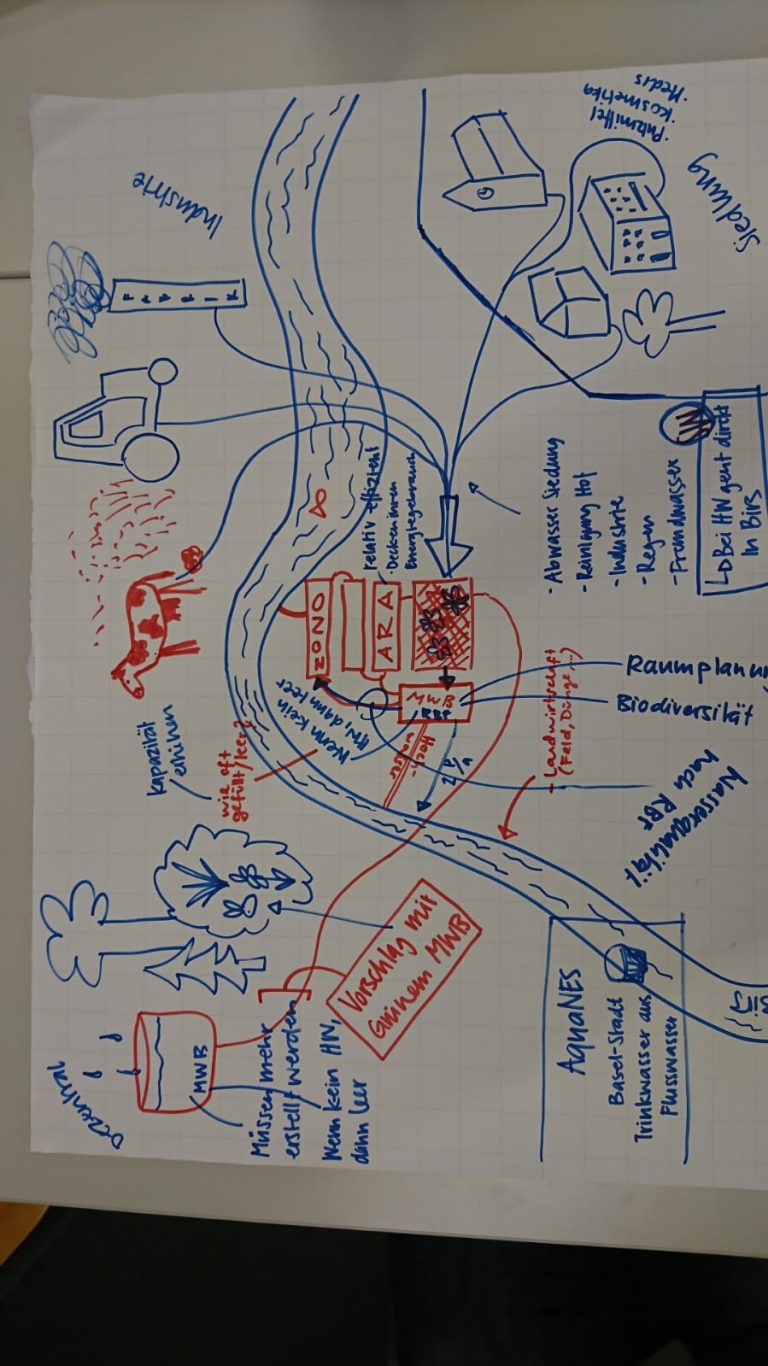 Industrie
FABRIK
Siedlung
· Putzmittel
· Kosmetika
· Medis
- Abwasser Siedlung
- Reinigung Hof
- Industrie
- Regen
- Fremdwasser
HN
↳ Bei HN geht direkt
in Birs
relativ effizient
- Decken ihren
Energiegebrauch
OZONO
ARA
MWB
RBF
Wenn kein
HN, dann leer
Hoch-
wasser
- Landwirtschaft
(Feld, Dünger, ...)
Raumplanung
Biodiversität
Wasserqualität
nach RBF
kapazität
erhöhen
wie oft
gefüllt/leer?
Vorschlag mit
Grünem MWB
Dezentral
MWB
Müssen mehr
erstellt werden
Wenn kein HN,
dann leer
AquaNES
Basel-Stadt
Trinkwasser aus
Flusswasser